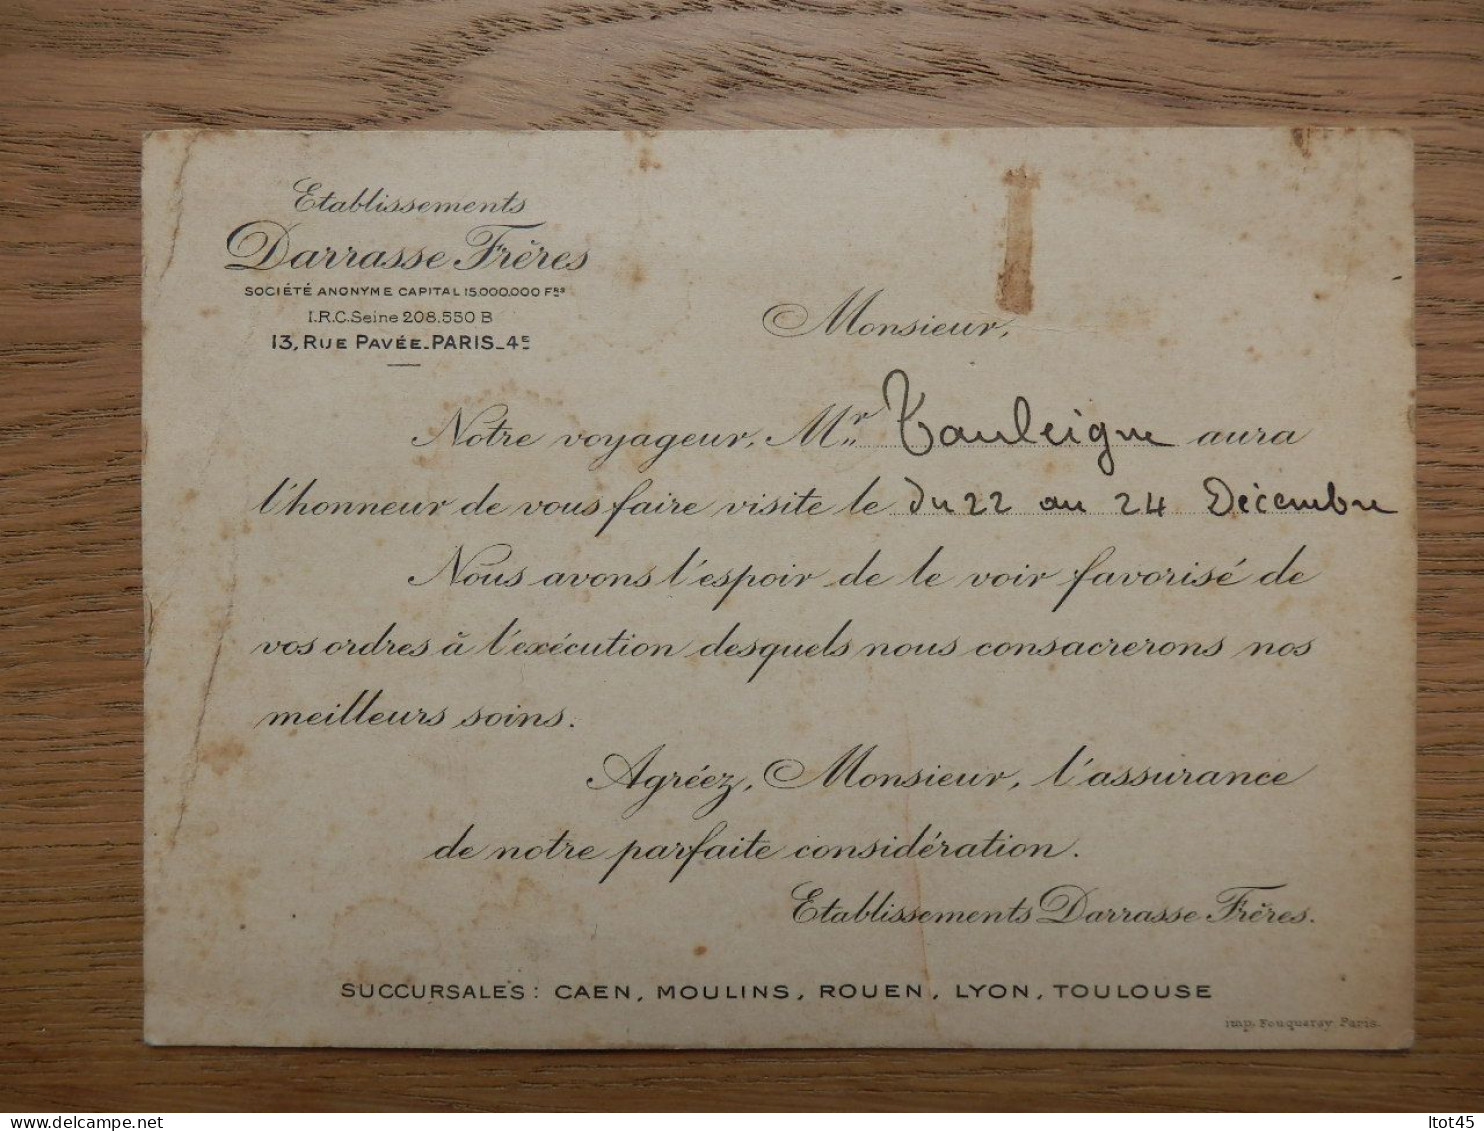 Etablissements
Darrasse Frères
SOCIÉTÉ ANONYME CAPITAL 15.000.000 Frs
I.R.C. Seine 208.550 B
13, RUE PAVÉE_PARIS_4E
Monsieur,
Notre voyageur, Mr Tauleigne aura
l'honneur de vous faire visite le du 22 au 24 Décembre
Nous avons l'espoir de le voir favorisé de
vos ordres à l'exécution desquels nous consacrerons nos
meilleurs soins.
Agréez, Monsieur, l'assurance
de notre parfaite considération.
Etablissements Darrasse Frères.
SUCCURSALES : CAEN, MOULINS, ROUEN, LYON, TOULOUSE
imp. Fouqueray Paris.
ltot45